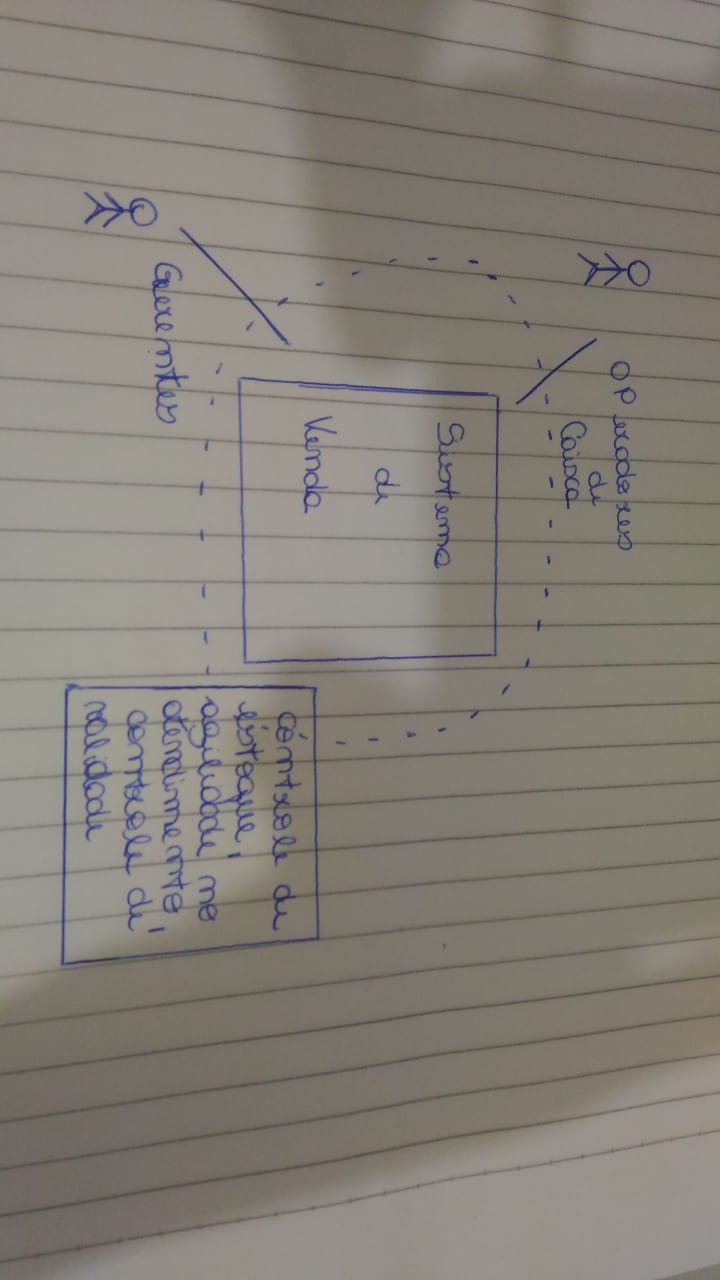 Operadores
de
Caixa
Sistema
de
Venda
Gerentes
controle de
estoque,
agilidade no
atendimento,
controle de
validade